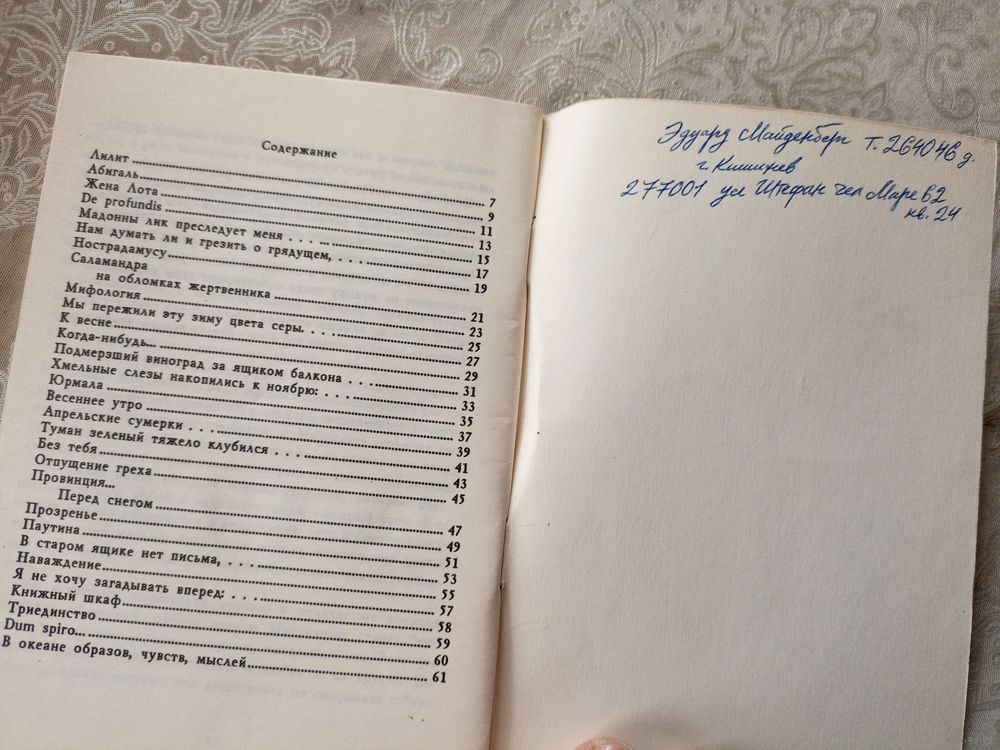 Содержание
Лилит ... 7
Абигаль ... 9
Жена Лота ... 11
De profundis ... 13
Мадонны лик преследует меня . . . ... 15
Нам думать ли и грезить о грядущем, . . . 17
Нострадамусу ... 19
Саламандра
на обломках жертвенника ... 21
Мифология ... 23
Мы пережили эту зиму цвета серы. . . . 25
К весне ... 27
Когда-нибудь... 29
Подмерзший виноград за ящиком балкона . . . 31
Хмельные слезы накопились к ноябрю: . . . 33
Юрмала ... 35
Весеннее утро ... 37
Апрельские сумерки . . . 39
Туман зеленый тяжело клубился . . . 41
Без тебя ... 43
Отпущение греха ... 45
Провинция...
Перед снегом ... 47
Прозренье ... 49
Паутина ... 51
В старом ящике нет письма, . . . 53
Наваждение ... 55
Я не хочу загадывать вперед: . . . 57
Книжный шкаф ... 58
Триединство ... 59
Dum spiro... 60
В океане образов, чувств, мыслей ... 61
Эдуард Майденберг т. 264046 д.
г. Кишинев
277001 ул Штефан чел Маре 62
кв. 24